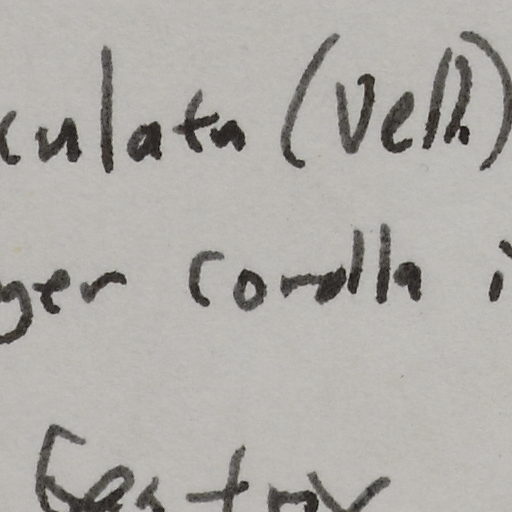 culata (Vell)
ger corolla i